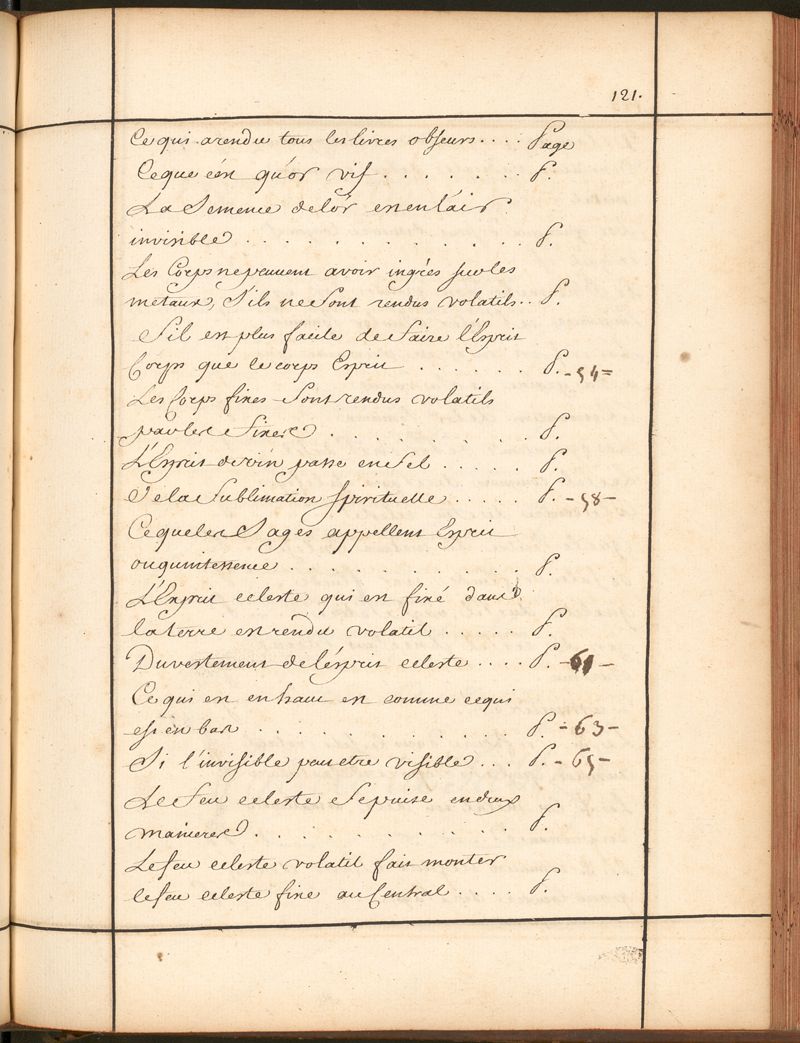 121.
Ce qui a rendu tous les livres obscurs .... Page
Ce que c'est qu'or vif ....... P.
La Semence de l'or est en l'air
invisible ............. P.
Les Corps ne peuuent avoir ingrés sur les
metaux, S'ils ne Sont rendus volatils .. P.
S'il est plus facile de faire l'Esprit
Corps que le corps Esprit ...... P. - 54 =
Les Corps fixes Sont rendus volatils
par les fixes ......... P.
L'Esprit de vin passe en Sel ..... P.
De la Sublimation Spirituelle ..... P. - 58 -
Ce que les Sages appellent Esprit
ou quintessence ........... P.
L'Esprit celeste qui est fixé dans
la terre est rendu volatil ..... P.
Du vestement de l'ésprit celeste .... P. - 61 -
Ce qui est en haut est comme ce qui
est en bas ............ P. - 63 -
Si l'invisible peut etre visible ... P. - 65 -
Le Feu celeste Se puise en deux
manieres ........... P.
Le feu celeste volatil fait monter
le feu celeste fixe au Central .... P.